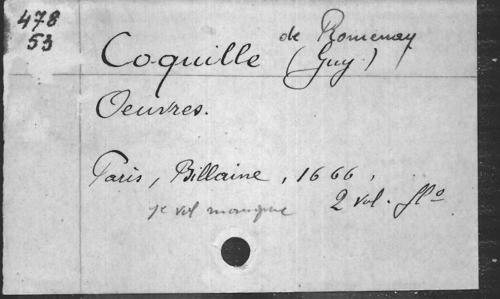 478
53
de Romenay
Coquille (Guy)
Oeuvres.
Paris, Billaine, 1666,
2 vol. flo
1e vol manque